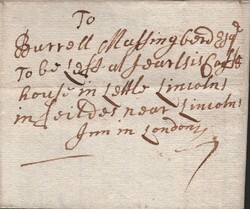 To
Burrell Massingberd Esqr
To be Left at Searlsis Coffe
house in Little Lincolns
in feildes near Lincolns
Inn in London